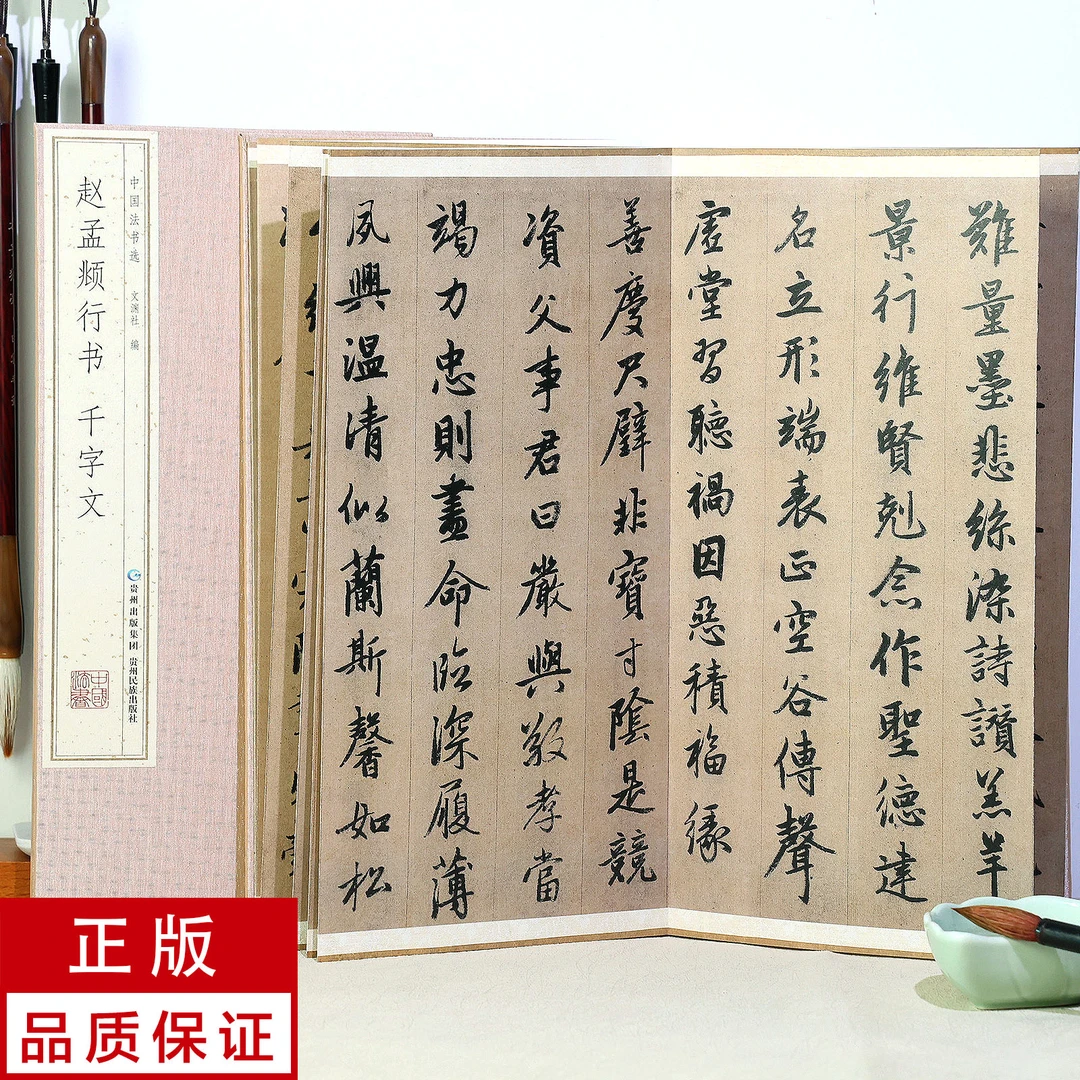 中国法书选 文渊社 编
赵孟頫行书 千字文
贵州出版集团 贵州民族出版社
中國法書
難量墨悲絲染詩讃羔羊
景行維賢剋念作聖德建
名立形端表正空谷傳聲
虛堂習聽禍因惡積福緣
善慶尺璧非寶寸陰是競
資父事君曰嚴與敬孝當
竭力忠則盡命臨深履薄
夙興温清似蘭斯馨如松
正版
品质保证